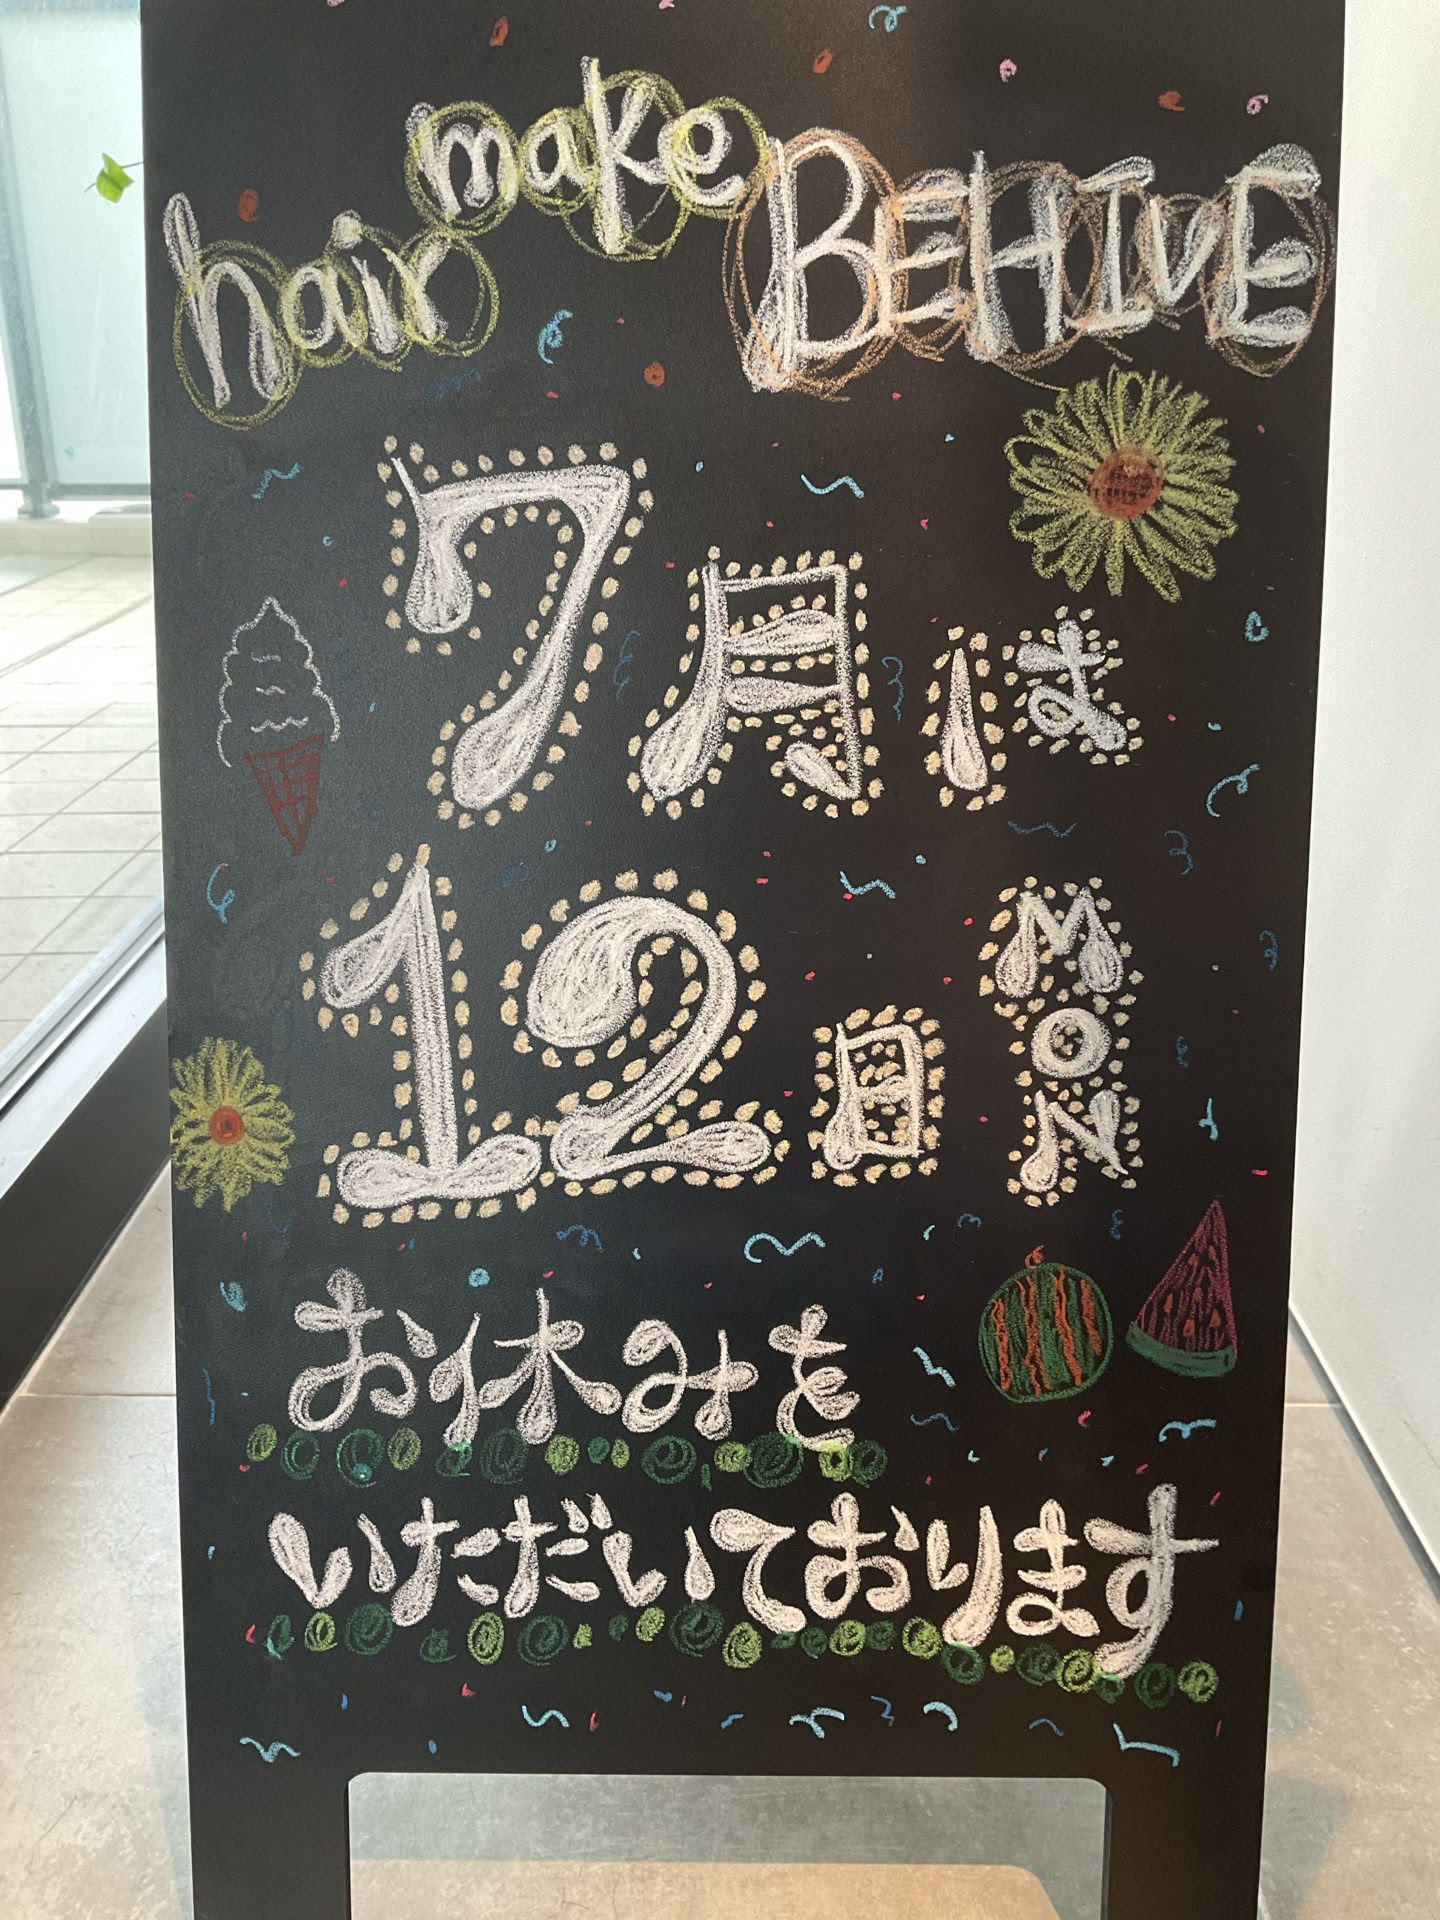 hair make BEHIVE
7月は
12日 MON
お休みを
いただいております